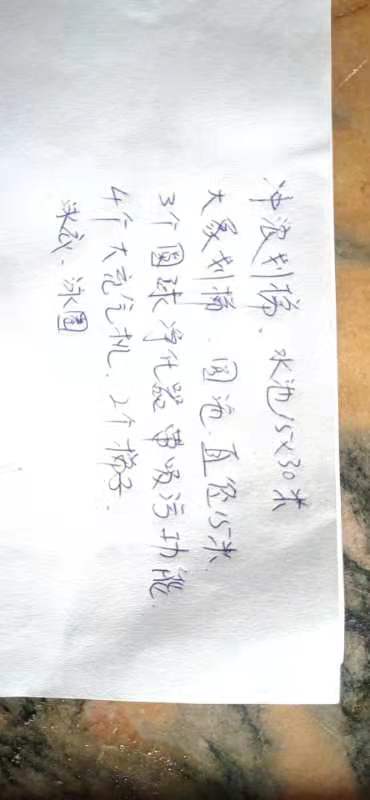 冲浪划梯、水池15×30米
大象划梯、圆池、直径15米
3个圆球净化器带吸污功能
4个大充气机、2个梯子.
泳圈